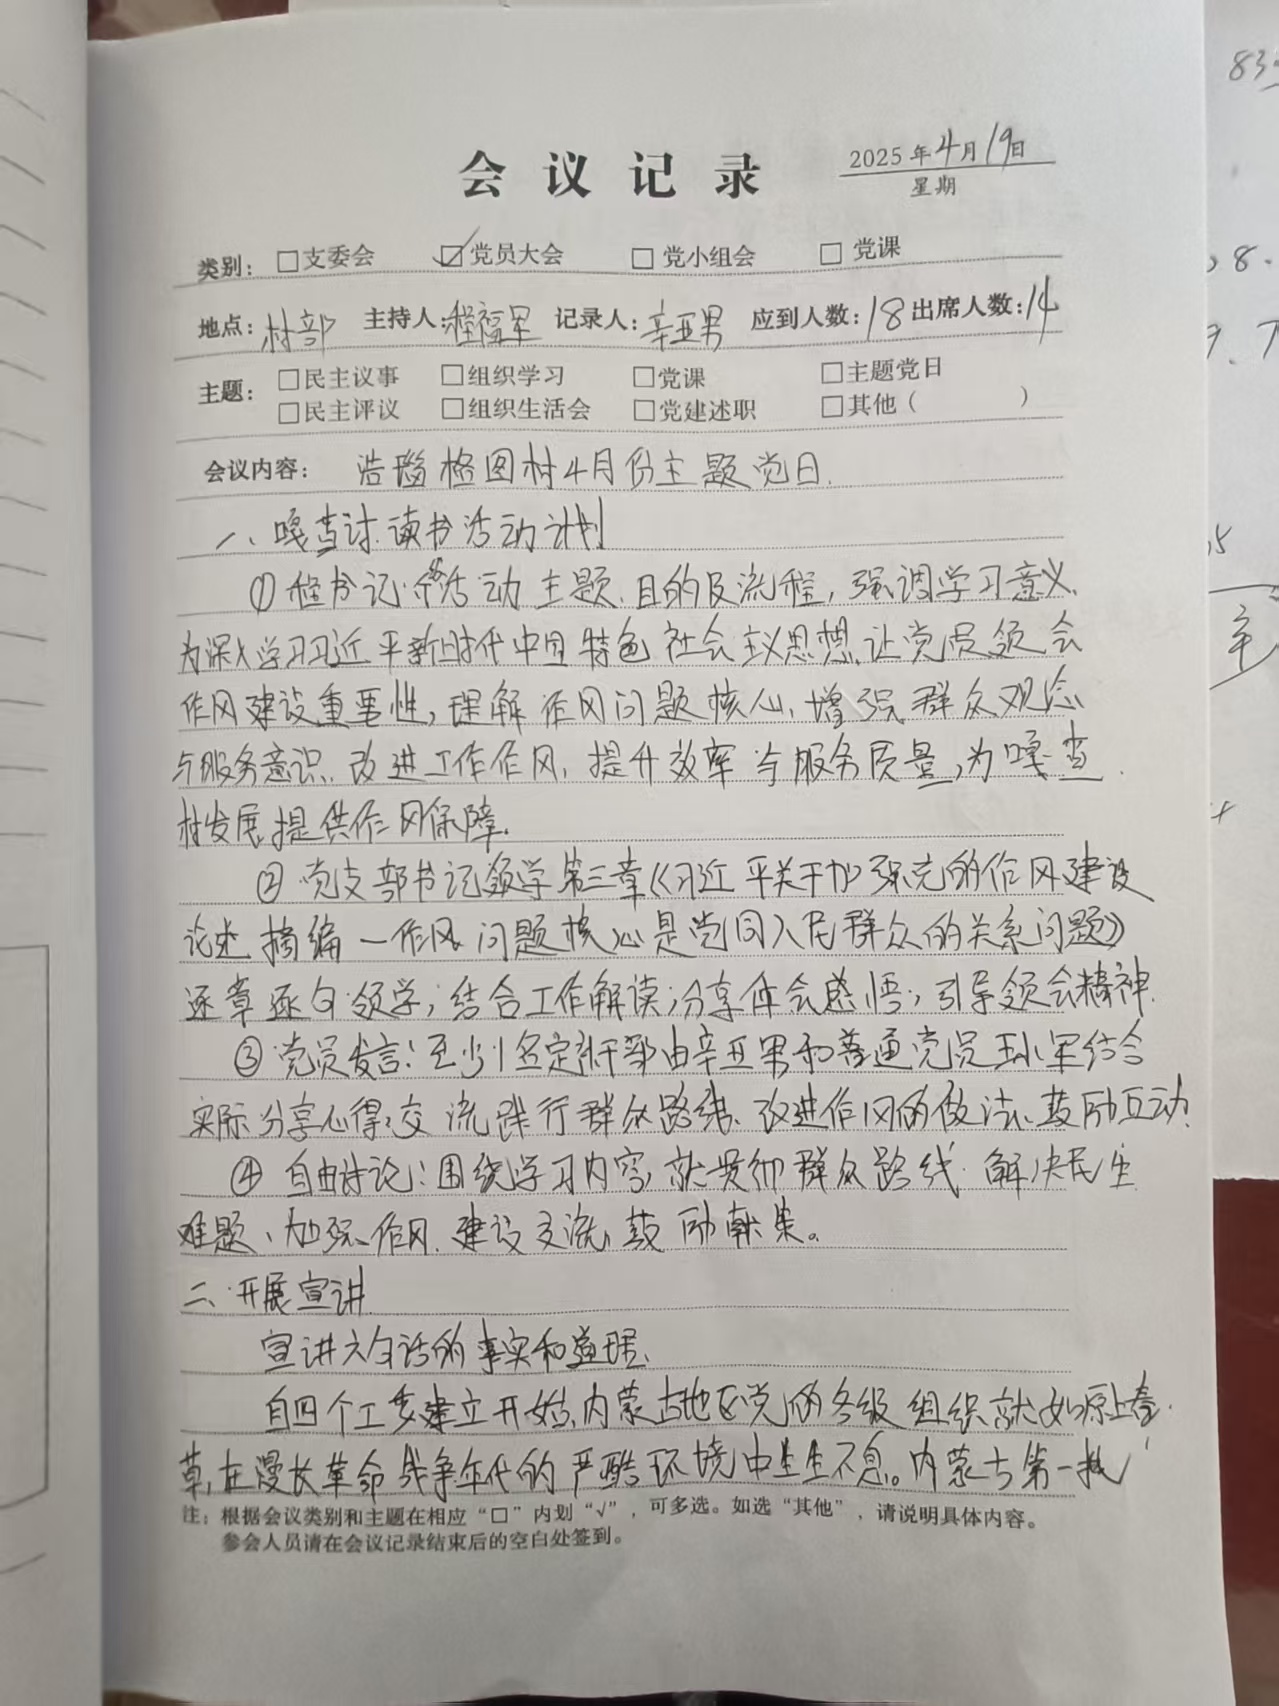 会议记录
2025年4月19日
星期
类别: □支委会 ☑党员大会 □党小组会 □党课
地点:村部 主持人:程福军 记录人:辛亚男 应到人数:18 出席人数:14
主题: □民主议事 □组织学习 □党课 □主题党日
□民主评议 □组织生活会 □党建述职 □其他( )
会议内容: 浩瑙格图村4月份主题党日.
一、嘎查讨.读书活动计划
①程书记:介活动主题.目的及流程,强调学习意义,
为深入学习习近平新时代中国特色社会主义思想,让党员领会
作风建设重要性,理解作风问题核心,增强群众观念
与服务意识,改进工作作风,提升效率与服务质量,为嘎查
村发展提供作风保障.
②党支部书记领学第三章《习近平关于加强党的作风建设
论述摘编—作风问题核心是党同人民群众的关系问题》
逐章逐句领学,结合工作解读,分享体会感悟,引导领会精神.
③党员发言:至少1名定村干部由辛亚男和普通党员王小军结合
实际分享心得,交流践行群众路线、改进作风的做法、鼓励互动.
④自由讨论:围绕学习内容,就贯彻群众路线.解决民生
难题、加强作风建设交流,鼓励献策。
二.开展宣讲
宣讲六句话的事实和道理.
自四个工委建立开始,内蒙古地区党的各级组织就如原上春
草,在漫长革命战争年代的严酷环境中生生不息。内蒙古第一批
注:根据会议类别和主题在相应“□”内划“√”,可多选。如选“其他”,请说明具体内容。
参会人员请在会议记录结束后的空白处签到。